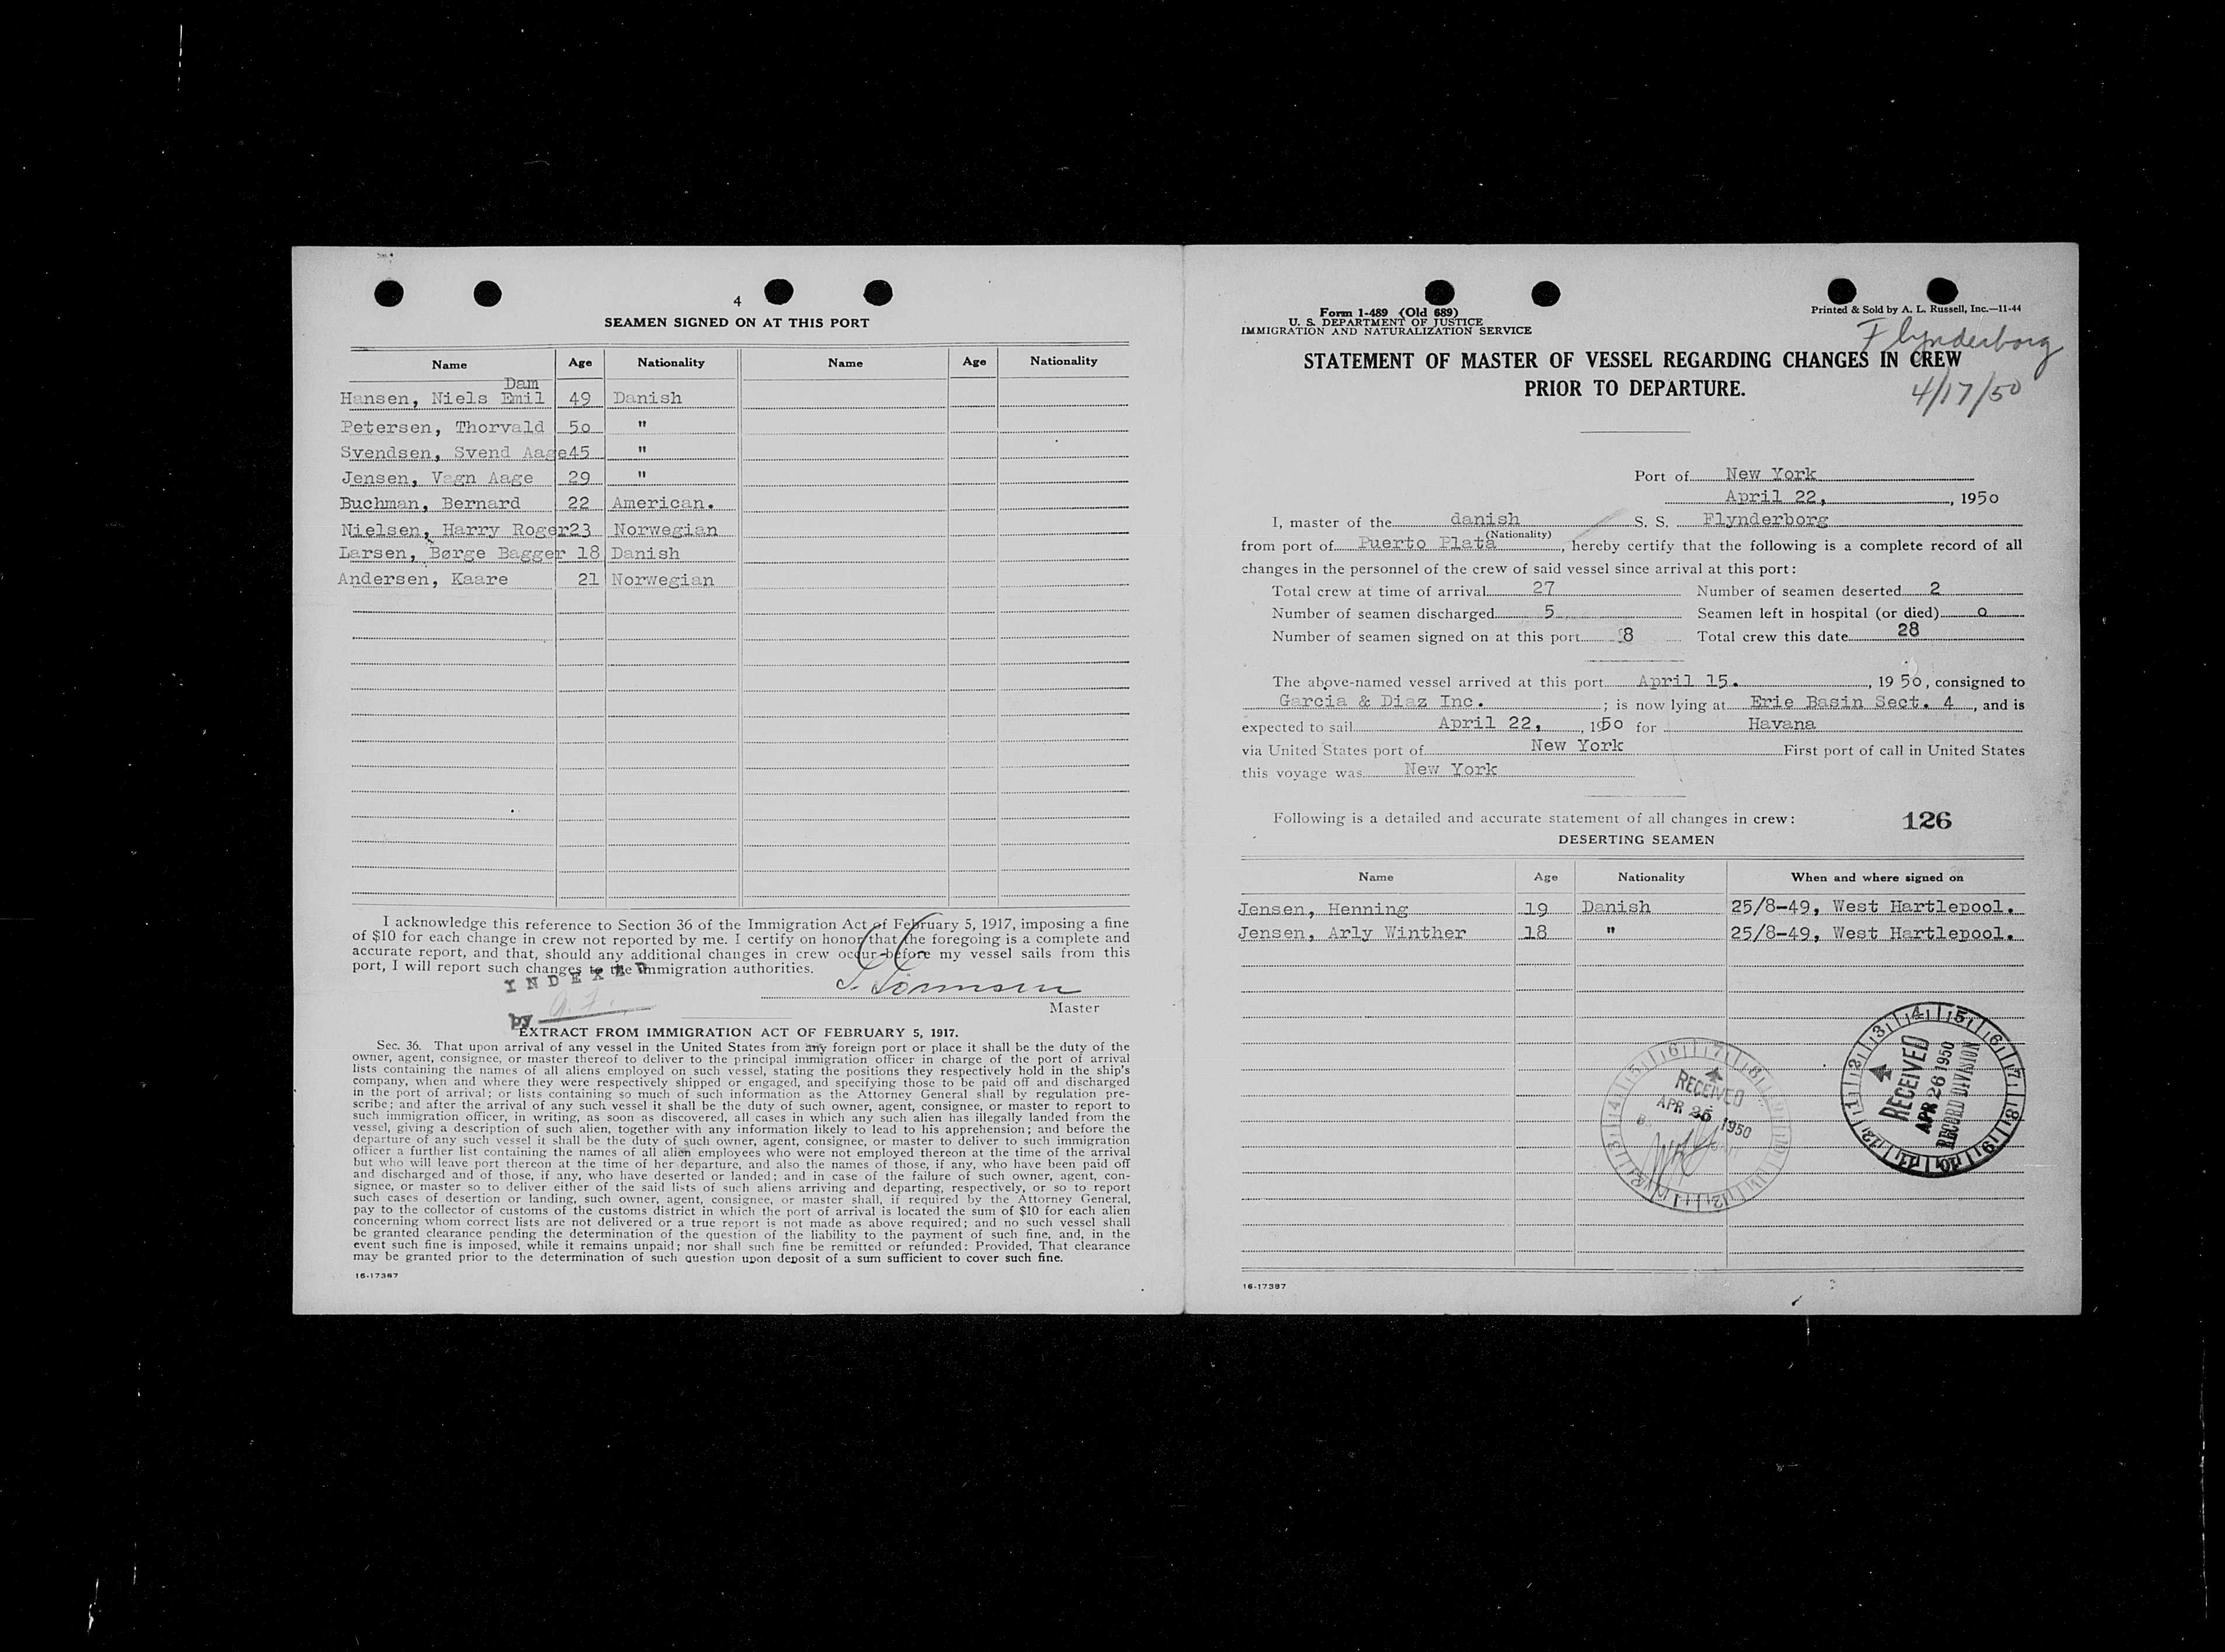 4
SEAMEN SIGNED ON AT THIS PORT
Name Age Nationality Name Age Nationality
Dam
Hansen, Niels Emil 49 Danish
Petersen, Thorvald 50 "
Svendsen, Svend Aage 45 "
Jensen, Vagn Aage 29 "
Buchman, Bernard 22 American.
Nielsen, Harry Roger 23 Norwegian
Larsen, Børge Bagger 18 Danish
Andersen, Kaare 21 Norwegian
I acknowledge this reference to Section 36 of the Immigration Act of February 5, 1917, imposing a fine
of $10 for each change in crew not reported by me. I certify on honor that the foregoing is a complete and
accurate report, and that, should any additional changes in crew occur before my vessel sails from this
port, I will report such changes to the immigration authorities.
INDEXED
by
Master
EXTRACT FROM IMMIGRATION ACT OF FEBRUARY 5, 1917.
Sec. 36. That upon arrival of any vessel in the United States from any foreign port or place it shall be the duty of the
owner, agent, consignee, or master thereof to deliver to the principal immigration officer in charge of the port of arrival
lists containing the names of all aliens employed on such vessel, stating the positions they respectively hold in the ship's
company, when and where they were respectively shipped or engaged, and specifying those to be paid off and discharged
in the port of arrival; or lists containing so much of such information as the Attorney General shall by regulation pre-
scribe; and after the arrival of any such vessel it shall be the duty of such owner, agent, consignee, or master to report to
such immigration officer, in writing, as soon as discovered, all cases in which any such alien has illegally landed from the
vessel, giving a description of such alien, together with any information likely to lead to his apprehension; and before the
departure of any such vessel it shall be the duty of such owner, agent, consignee, or master to deliver to such immigration
officer a further list containing the names of all alien employees who were not employed thereon at the time of the arrival
but who will leave port thereon at the time of her departure, and also the names of those, if any, who have been paid off
and discharged and of those, if any, who have deserted or landed; and in case of the failure of such owner, agent, con-
signee, or master so to deliver either of the said lists of such aliens arriving and departing, respectively, or so to report
such cases of desertion or landing, such owner, agent, consignee, or master shall, if required by the Attorney General,
pay to the collector of customs of the customs district in which the port of arrival is located the sum of $10 for each alien
concerning whom correct lists are not delivered or a true report is not made as above required; and no such vessel shall
be granted clearance pending the determination of the question of the liability to the payment of such fine, and, in the
event such fine is imposed, while it remains unpaid; nor shall such fine be remitted or refunded: Provided, That clearance
may be granted prior to the determination of such question upon deposit of a sum sufficient to cover such fine.
16-17387
Form 1-489 (Old 689)
U. S. DEPARTMENT OF JUSTICE
IMMIGRATION AND NATURALIZATION SERVICE
Printed & Sold by A. L. Russell, Inc.—11-44
Flynderborg
STATEMENT OF MASTER OF VESSEL REGARDING CHANGES IN CREW
PRIOR TO DEPARTURE.
4/17/50
Port of New York
April 22, , 1950
I, master of the danish S. S. Flynderborg
(Nationality)
from port of Puerto Plata , hereby certify that the following is a complete record of all
changes in the personnel of the crew of said vessel since arrival at this port:
Total crew at time of arrival 27 Number of seamen deserted 2
Number of seamen discharged 5 Seamen left in hospital (or died) 0
Number of seamen signed on at this port 8 Total crew this date 28
The above-named vessel arrived at this port April 15. , 1950, consigned to
Garcia & Diaz Inc. ; is now lying at Erie Basin Sect. 4 , and is
expected to sail April 22, , 1950 for Havana
via United States port of New York First port of call in United States
this voyage was New York
Following is a detailed and accurate statement of all changes in crew: 126
DESERTING SEAMEN
Name Age Nationality When and where signed on
Jensen, Henning 19 Danish 25/8-49, West Hartlepool.
Jensen, Arly Winther 18 " 25/8-49, West Hartlepool.
RECEIVED
APR 26 1950
RECORD DIVISION
RECEIVED
APR 1950
16-17387